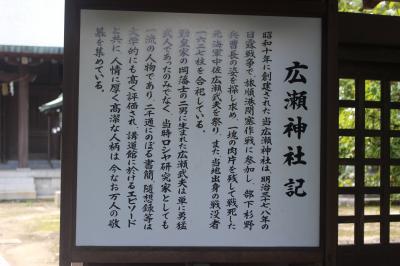 広瀬神社記
昭和十年に創建された当広瀬神社は、明治三十七八年の
日露戦争で、旅順港閉塞作戦に参加し、部下杉野
兵曹長の姿を探し求め、一塊の肉片を残して戦死した
元海軍中佐広瀬武夫を祭り、また当地出身の戦没者
一六二七柱を合祀している。
勤皇家の岡藩士の二男に生まれた広瀬武夫は単に勇猛
武人であったのみでなく、当時ロシヤ研究家としても
一流の人物であり、二千通にのぼる書翰、随想録等は
文学的にも高く評価され、講道館に於けるエピソード
と共に、人情に厚く高潔な人柄は、今なお万人の敬
慕を集めている。